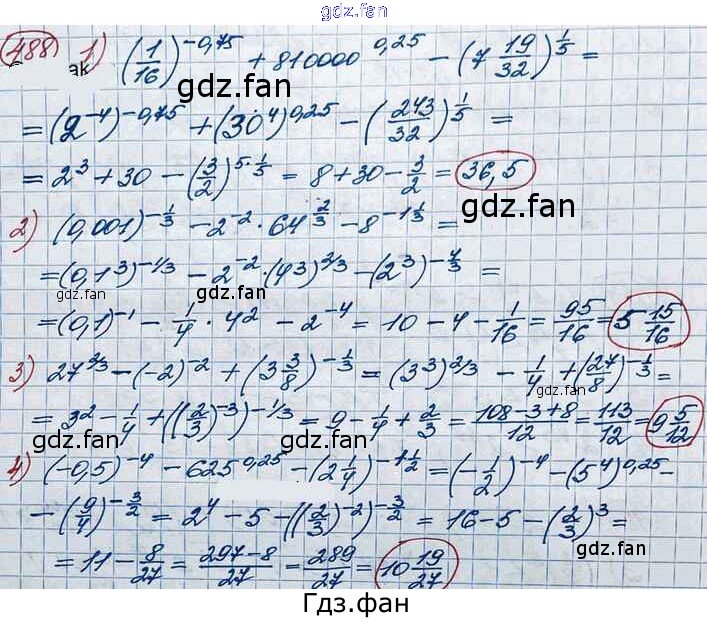 gdz.fan
488 1) (1/16)^-0,75 + 810000^0,25 - (7 19/32)^1/5 =
эк
gdz.fan gdz.fan
= (2^-4)^-0,75 + (30^4)^0,25 - (243/32)^1/5 =
= 2^3 + 30 - (3/2)^5·1/5 = 8 + 30 - 3/2 = 36,5
gdz.fan
2) (0,001)^-1/3 - 2^-2 · 64^2/3 - 8^-1 1/3 =
gdz.fan
= (0,1^3)^-1/3 - 2^-2 · (4^3)^2/3 - (2^3)^-4/3 =
gdz.fan gdz.fan
= (0,1)^-1 - 1/4 · 4^2 - 2^-4 = 10 - 4 - 1/16 = 95/16 = 5 15/16
gdz.fan
3) 27^2/3 - (-2)^-2 + (3 3/8)^-1/3 = (3^3)^2/3 - 1/4 + (27/8)^-1/3 =
= 3^2 - 1/4 + ((2/3)^-3)^-1/3 = 9 - 1/4 + 2/3 = 108-3+8/12 = 113/12 = 9 5/12
gdz.fan gdz.fan
4) (-0,5)^-4 - 625^0,25 - (2 1/4)^-1 1/2 = (-1/2)^-4 - (5^4)^0,25 -
- (9/4)^-3/2 = 2^4 - 5 - ((2/3)^-2)^-3/2 = 16 - 5 - (2/3)^3 =
gdz.fan gdz.fan
= 11 - 8/27 = 297-8/27 = 289/27 = 10 19/27
gdz.fan gdz.fan
Гдз.фан